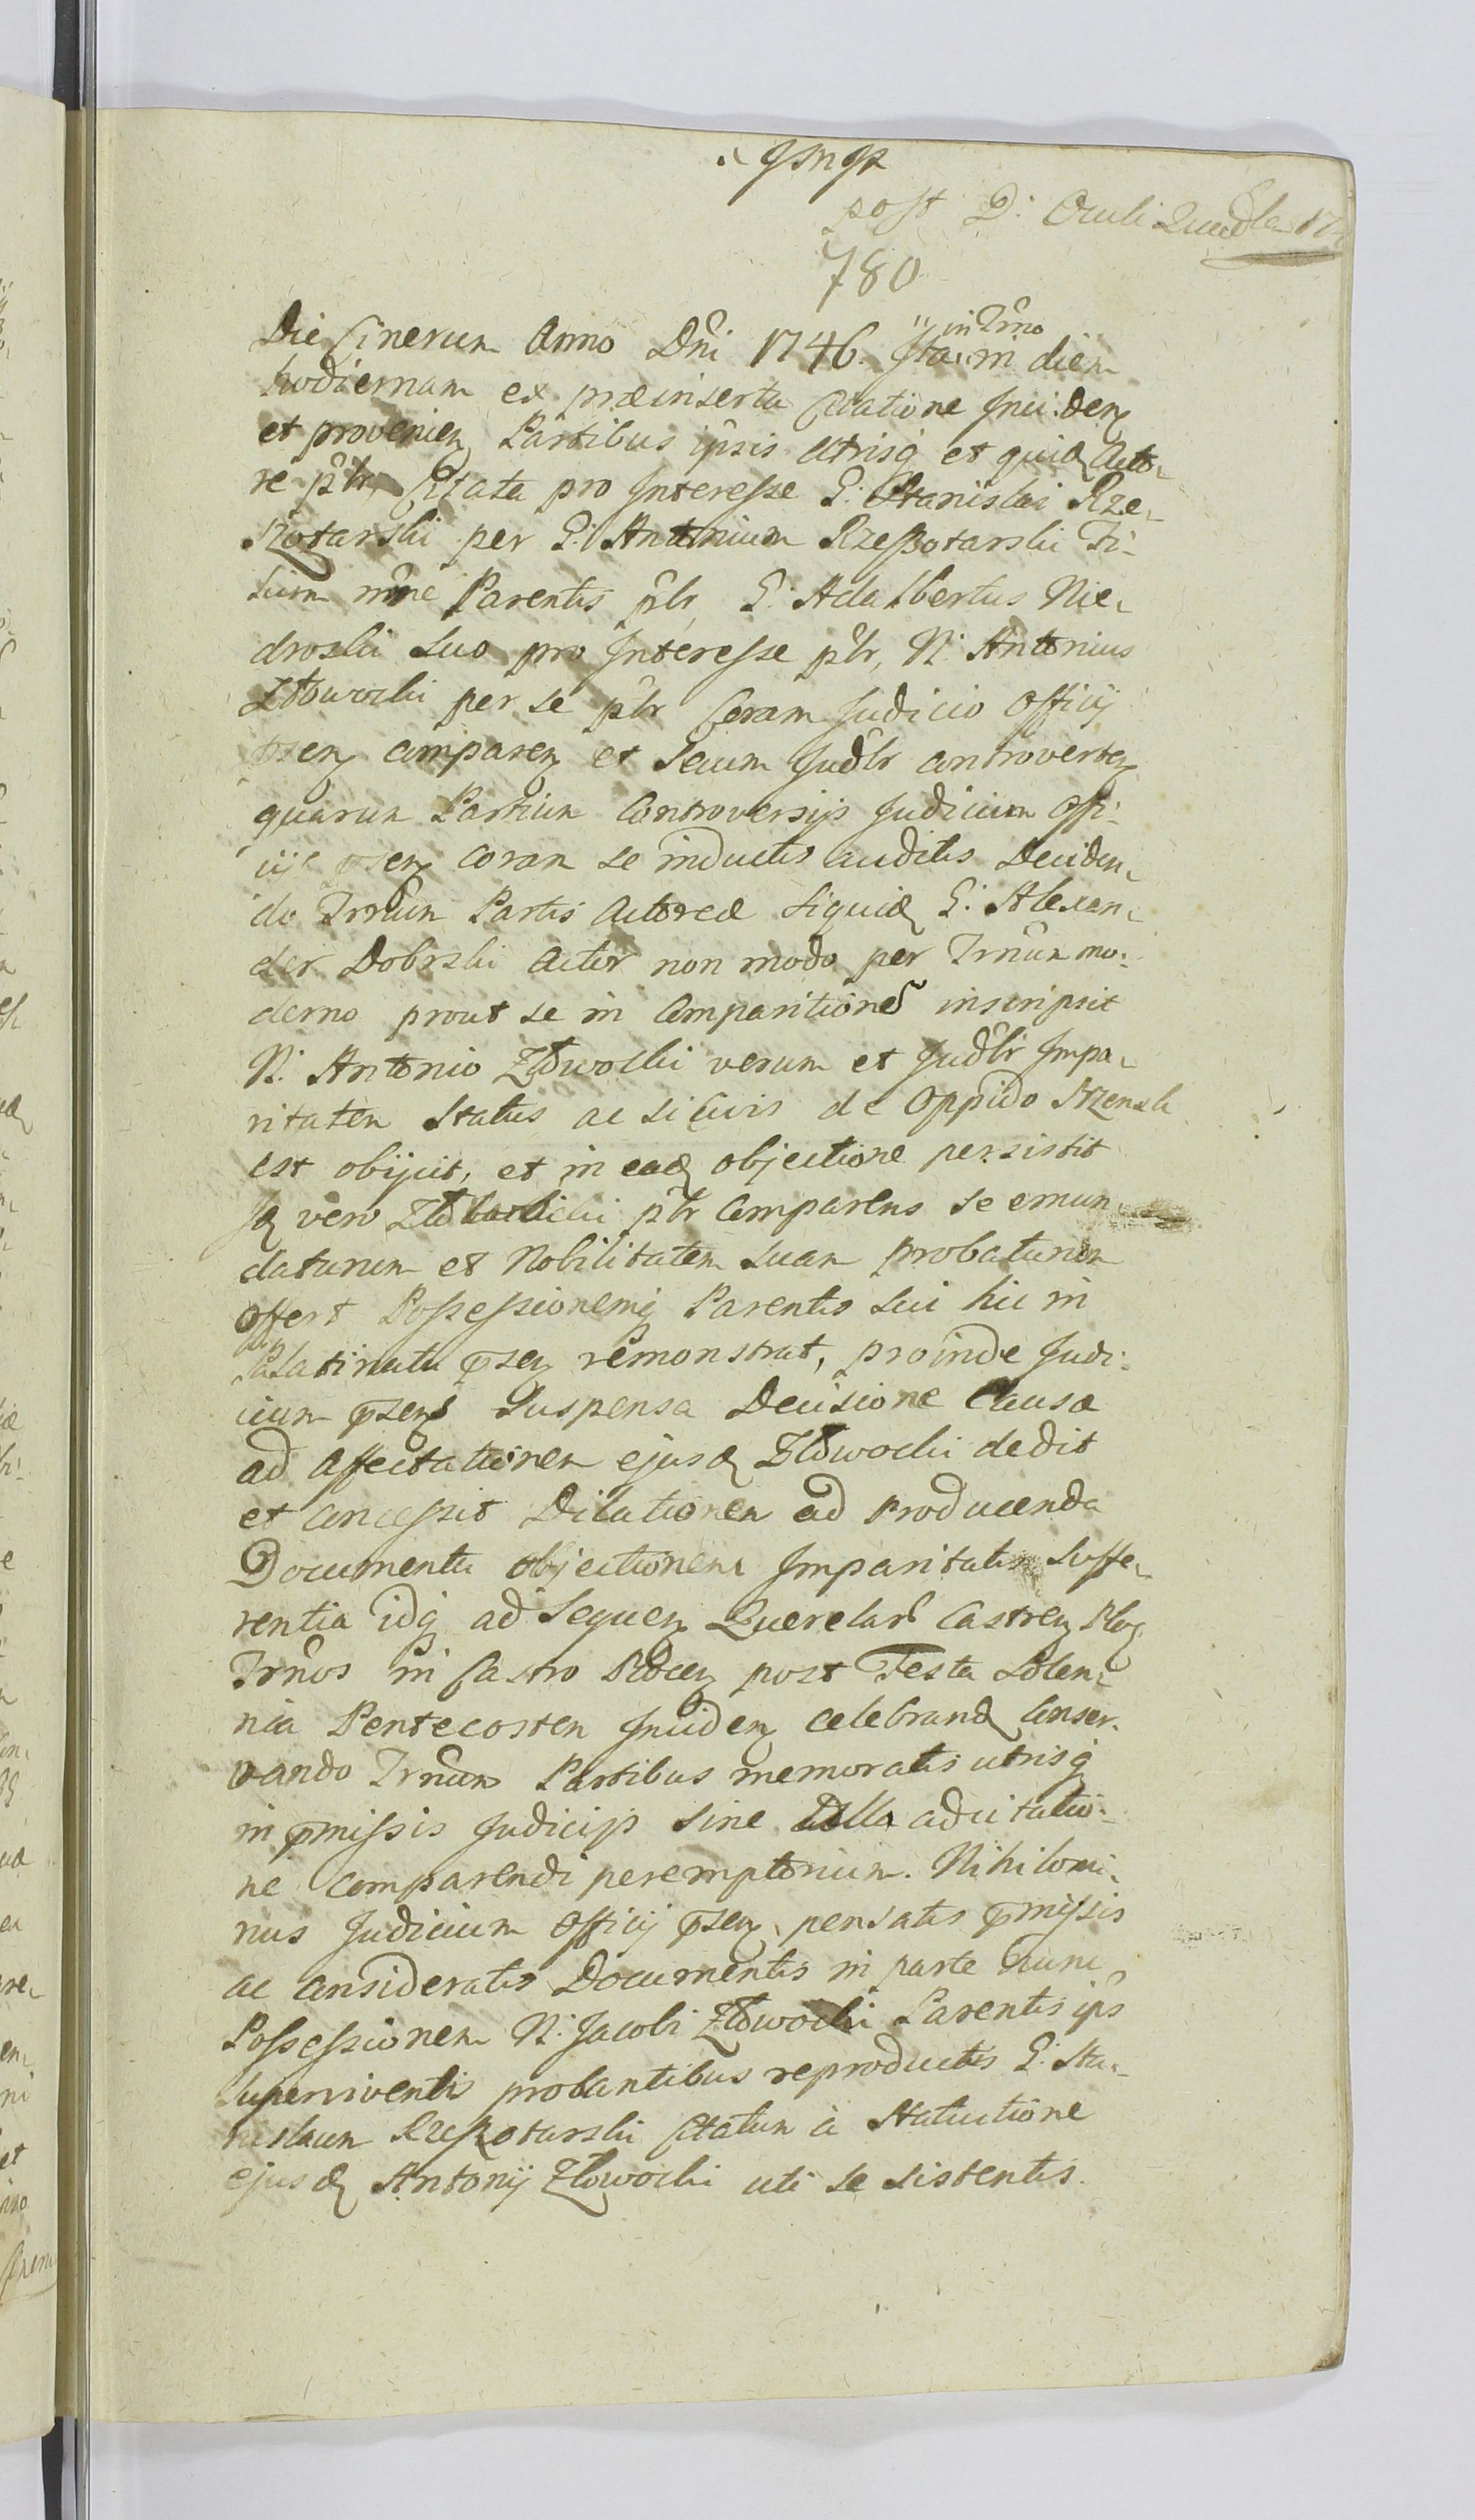 post D: Oculi
780
Die Cinerum Anno Dni 1746. Itaq in Trno in diem
hodiernam ex præinserta Citatione Inciden
et provenien Partibus ipsis utrisq et quid Acto-
re plr, Citata pro Interesse G: Stanislai Rze-
szotarski per G: Antonium Rzeszotarski Fi-
lium nne Parentis plr, G: Adalbertus Nie-
droski suo pro Interesse plr, N: Antonius
Złowocki per se plr Coram Judicio Officij
psen comparen et secum Judlr controverten
quarum Partium Controversijs Judicium Offi-
cij psen coram se inductis auditis Deciden-
do Trnum Partis Actoreæ siquid G: Alexan-
der Dobrski Actor non modo per Trnum mo-
derno prout se in Comparitione inscripsit
N: Antonio Złowocki verum et Judlr Impa-
ritatem Status ac si Civis de Oppido Szrensk
est obijcit, et in ead objectione persistit
Id vero plr Comparens se emun-
daturum et Nobilitatem suam probaturum
offert Possessionemq Parentis sui hic in
Palatinatu psen remonstrat, proinde Judi-
cium psens suspensa Decisione Causæ
ad affectationem ejusd Złowocki dedit
et concessit Dilationem ad producenda
Documenta objectionem Imparitatis suffe-
rentia idq ad sequen Querelar Castren Ploc
Trnos in Castro Plocen post Festa Solen-
nia Pentecosten Inciden celebrand Conser-
vando Trnum Partibus memoratis utrisq
in pmissis Judicijs sine ulla adcitatio-
ne comparendi peremptorium. Nihilomi-
nus Judicium Officij psen, pensatis pmissis
ac consideratis Documentis in parte hunc
Possessionem N: Jacobi Złowocki Parentis ips
superviventis probantibus reproductis G: Sta-
nislaum Rzeszotarski Citatum a Statuitione
ejusd Antonij Złowocki uti se sistentis.